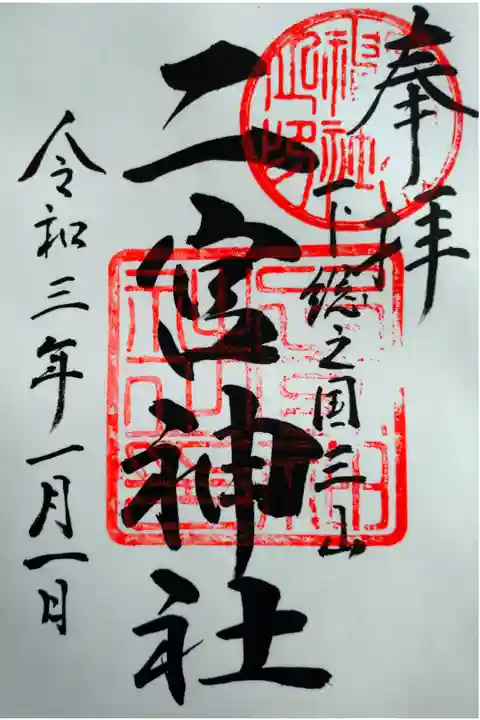 奉拝
下総之国三山
二宮神社
令和三年一月一日